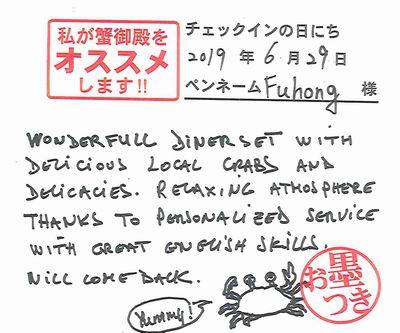 私が蟹御殿を
オススメ
します!!
チェックインの日にち
2019 年 6 月 29 日
ペンネーム Fuhong 様
WONDERFULL DINER SET WITH
DELICIOUS LOCAL CRABS AND
DELICACIES. RELAXING ATMOSPHERE
THANKS TO PERSONALIZED SERVICE
WITH GREAT ENGLISH SKILLS.
WILL COME BACK.
Yummy!
お墨
つき